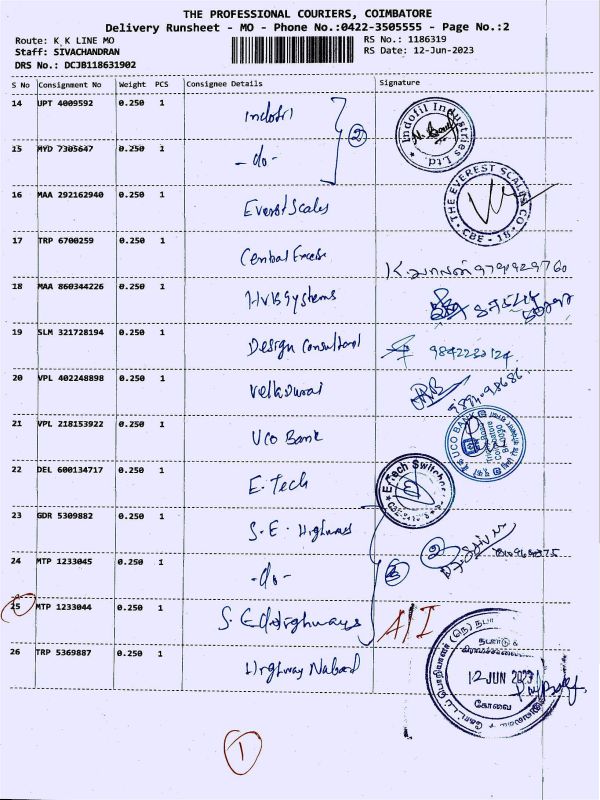 THE PROFESSIONAL COURIERS, COIMBATORE
Delivery Runsheet - MO - Phone No.:0422-3505555 - Page No.:2
Route: K K LINE MO
RS No.: 1186319
Staff: SIVACHANDRAN
RS Date: 12-Jun-2023
DRS No.: DCJB118631902
S No Consignment No Weight PCS Consignee Details Signature
14 UPT 4009592 0.250 1 Indofil
2
Indofil Industries Ltd
15 MYD 7305647 0.250 1 -do-
16 MAA 292162940 0.250 1 Everest Scales
THE EVEREST SCALES CO CBE - 18
17 TRP 6700259 0.250 1 Central Excise
18 MAA 860344226 0.250 1 HVB Systems
19 SLM 321728194 0.250 1 Design Consultant
20 VPL 402248898 0.250 1 Velladurai
21 VPL 218153922 0.250 1 UCO Bank
UCO BANK
22 DEL 600134717 0.250 1 E. Tech
23 GDR 5309882 0.250 1 S.E. Highways
24 MTP 1233045 0.250 1 -do-
25 MTP 1233044 0.250 1 S.E Highways
A/I
26 TRP 5369887 0.250 1 Highway Nabard
நபார்டு &
12 JUN 2023
கோவை
1